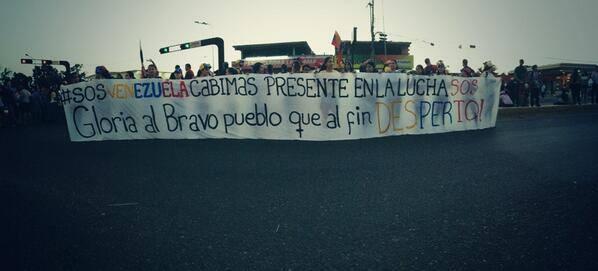 #SOSVENEZUELA CABIMAS PRESENTE EN LA LUCHA SOS
Gloria al Bravo pueblo que al fin DESPERTO!